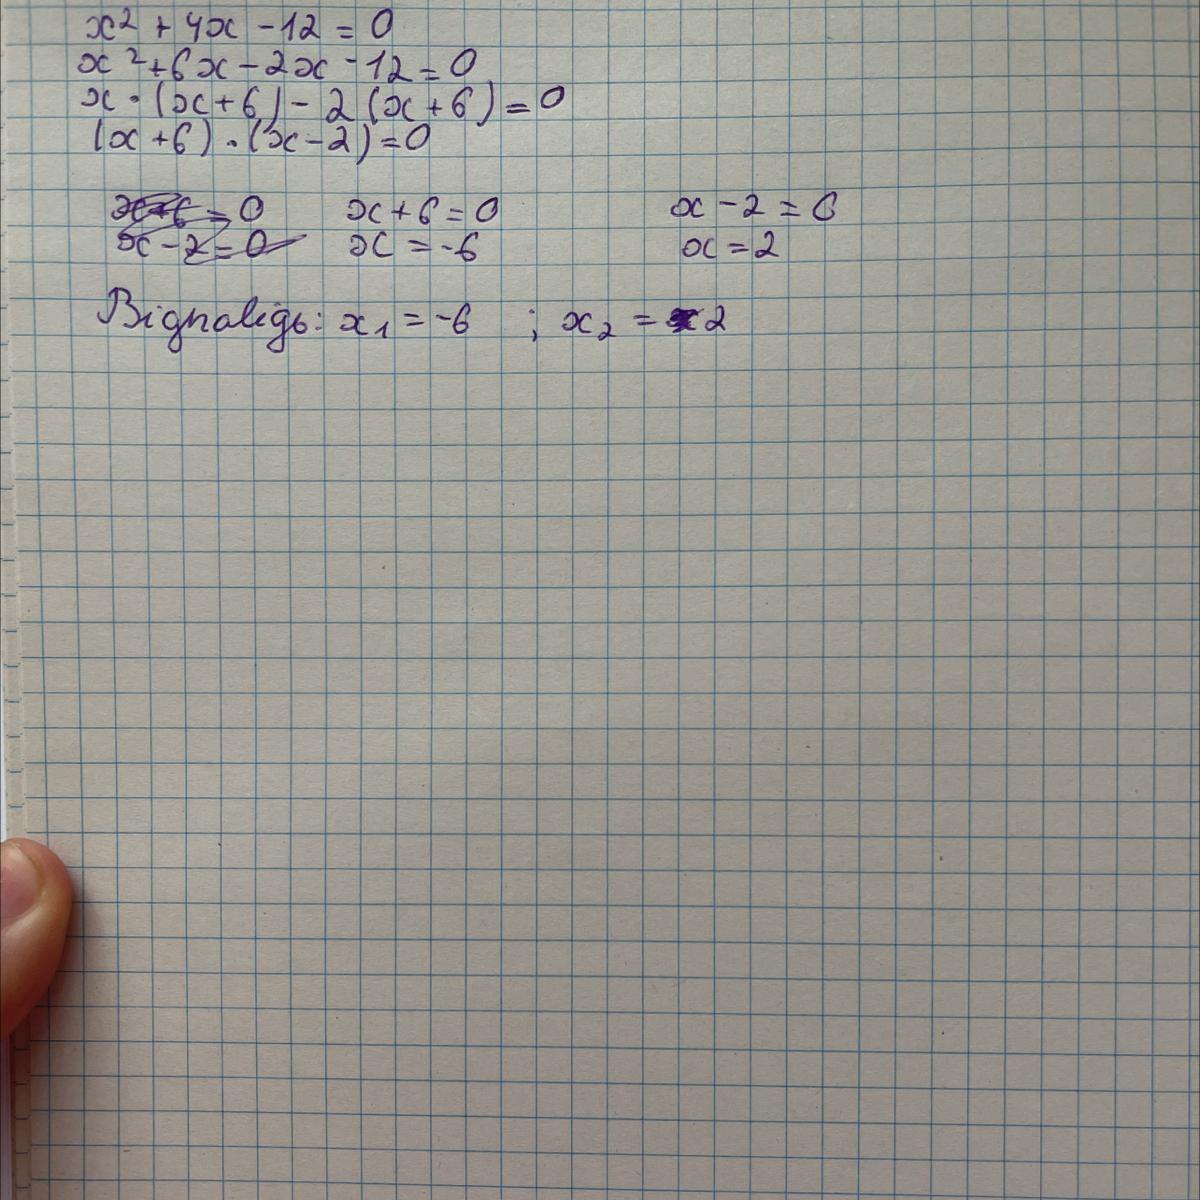 x² + 4x - 12 = 0
x² + 6x - 2x - 12 = 0
x · (x + 6) - 2 (x + 6) = 0
(x + 6) · (x - 2) = 0
x + 6 = 0 x + 6 = 0 x - 2 = 0
x - 2 = 0 x = -6 x = 2
Відповідь: x₁ = -6 ; x₂ = 2